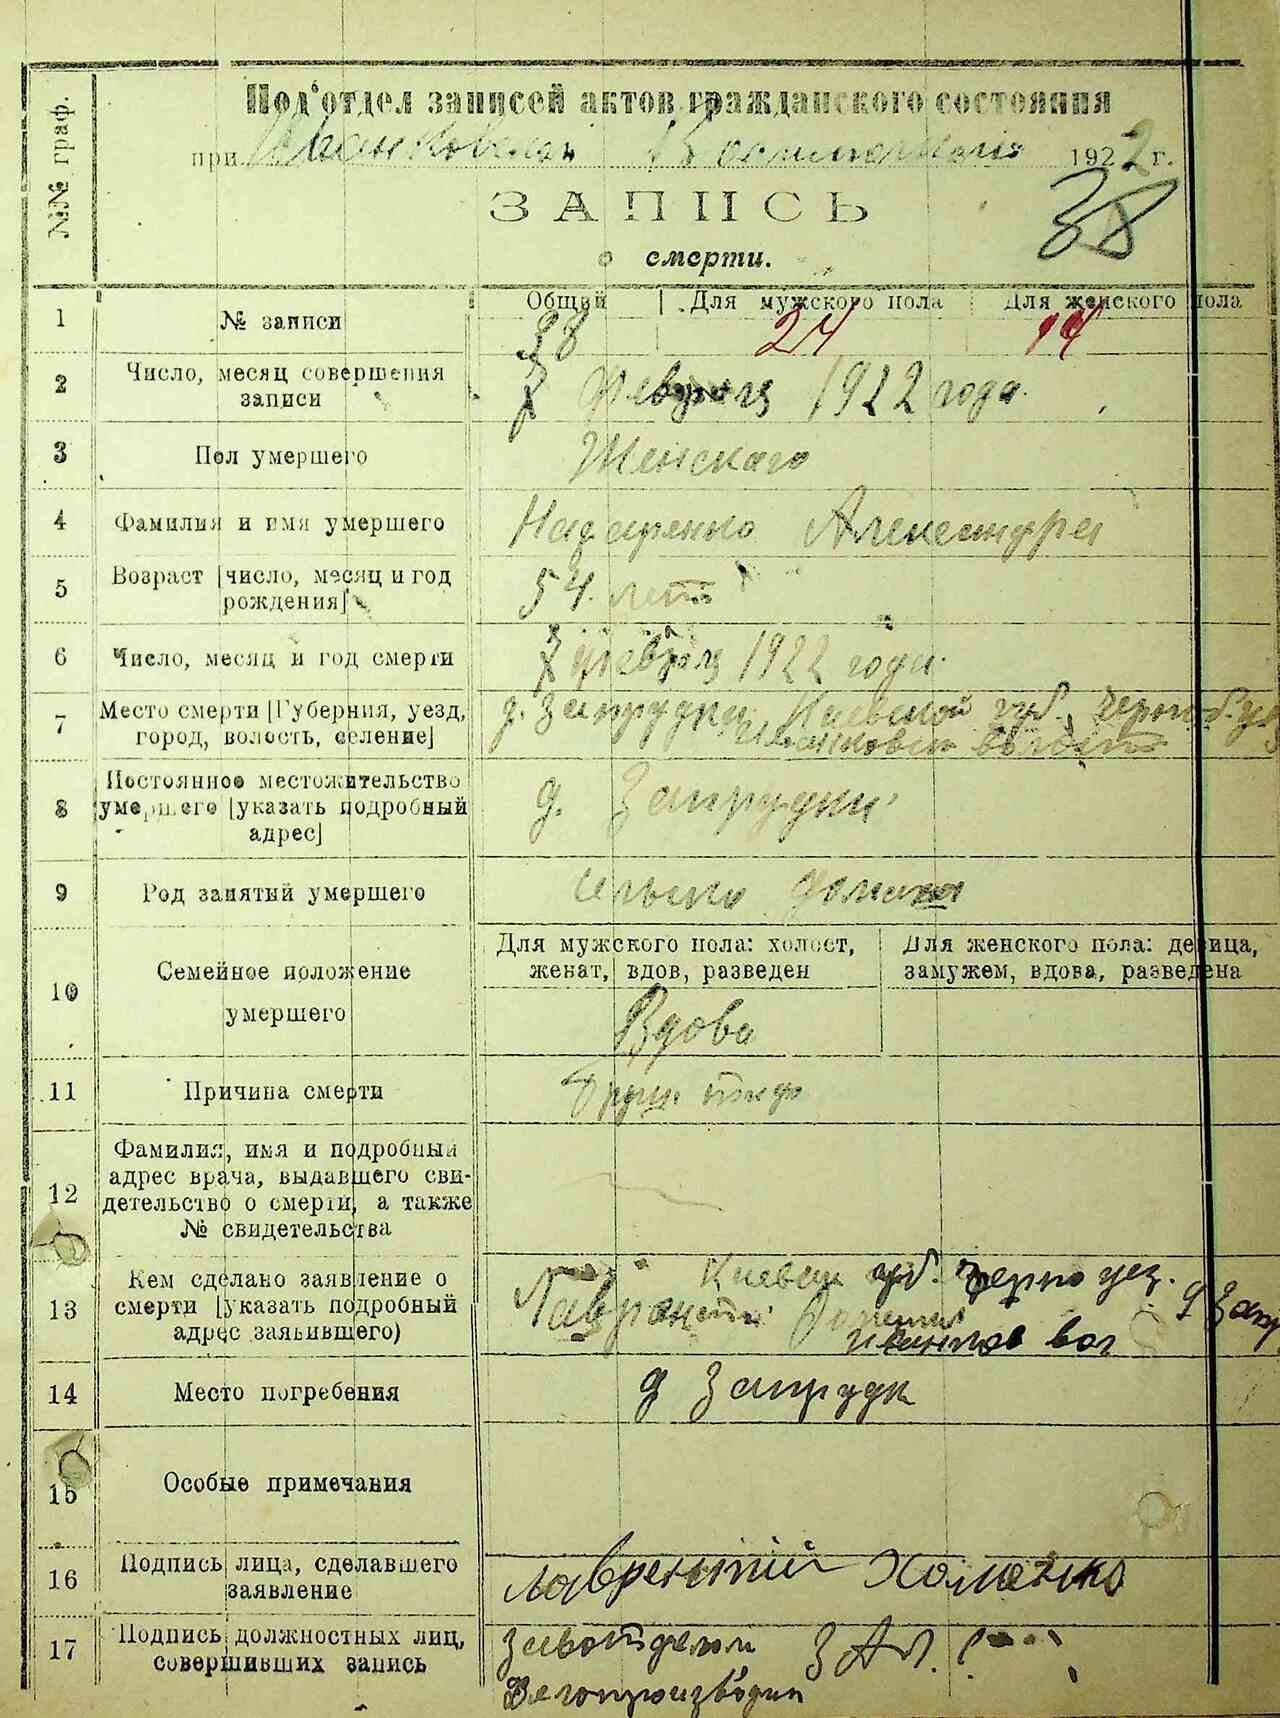 №№ граф.
Под'отдел записей актов гражданского состояния
при Иванковской 1922 г.
ЗАПИСЬ
о смерти.
38
Общий | Для мужского пола | Для женского пола
1 № записи 38 24 14
2 Число, месяц совершения
записи
7 Февраля 1922 года.
3 Пол умершего Женскаго
4 Фамилия и имя умершего Назаренко Александра
5 Возраст [число, месяц и год
рождения]
54. лет
6 Число, месяц и год смерти 7 февраля 1922 года.
7 Место смерти [Губерния, уезд,
город, волость, селение]
д. Запрудка, Киевской губ. Черноб. у
Иванковск волость
8 Постоянное местожительство
умершего [указать подробный
адрес]
д. Запрудки
9 Род занятий умершего
10 Семейное положение
умершего
Для мужского пола: холост,
женат, вдов, разведен
Для женского пола: девица,
замужем, вдова, разведена
Вдова
11 Причина смерти Брюш. тиф
12 Фамилия, имя и подробный
адрес врача, выдавшего сви-
детельство о смерти, а также
№ свидетельства
13 Кем сделано заявление о
смерти [указать подробный
адрес заявившего)
Киевск губ. Черно уез.
Иванков вол
14 Место погребения д Запрудк
15 Особые примечания
16 Подпись лица, сделавшего
заявление
Лаврентий Хоменко
17 Подпись должностных лиц,
совершивших запись
Завотделом
Делопроизводит